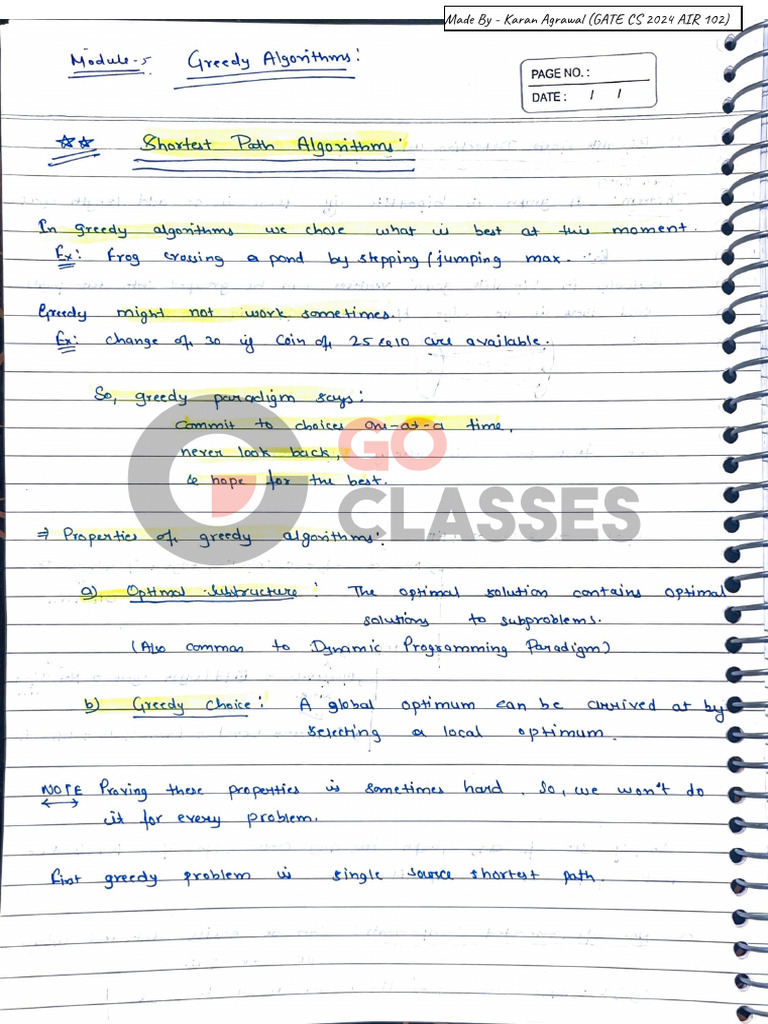 Made By - Karan Agrawal (GATE CS 2024 AIR 102)
Module-5 Greedy Algorithms:
PAGE NO.:
DATE: / /
☆☆ Shortest Path Algorithms:
In greedy algorithms we chose what is best at this moment.
Ex: Frog crossing a pond by stepping/jumping max.
Greedy might not work sometimes.
Ex: change of 30 if Coin of 25 & 10 are available.
So, greedy paradigm says:
commit to choices one-at-a time,
never look back,
& hope for the best.
GO
CLASSES
⇒ Properties of greedy algorithms:
a) Optimal substructure: The optimal solution contains optimal
solutions to subproblems.
(Also common to Dynamic Programming Paradigm)
b) Greedy Choice: A global optimum can be arrived at by
selecting a local optimum.
NOTE Proving these properties is sometimes hard. So, we won't do
it for every problem.
First greedy problem is single source shortest path.